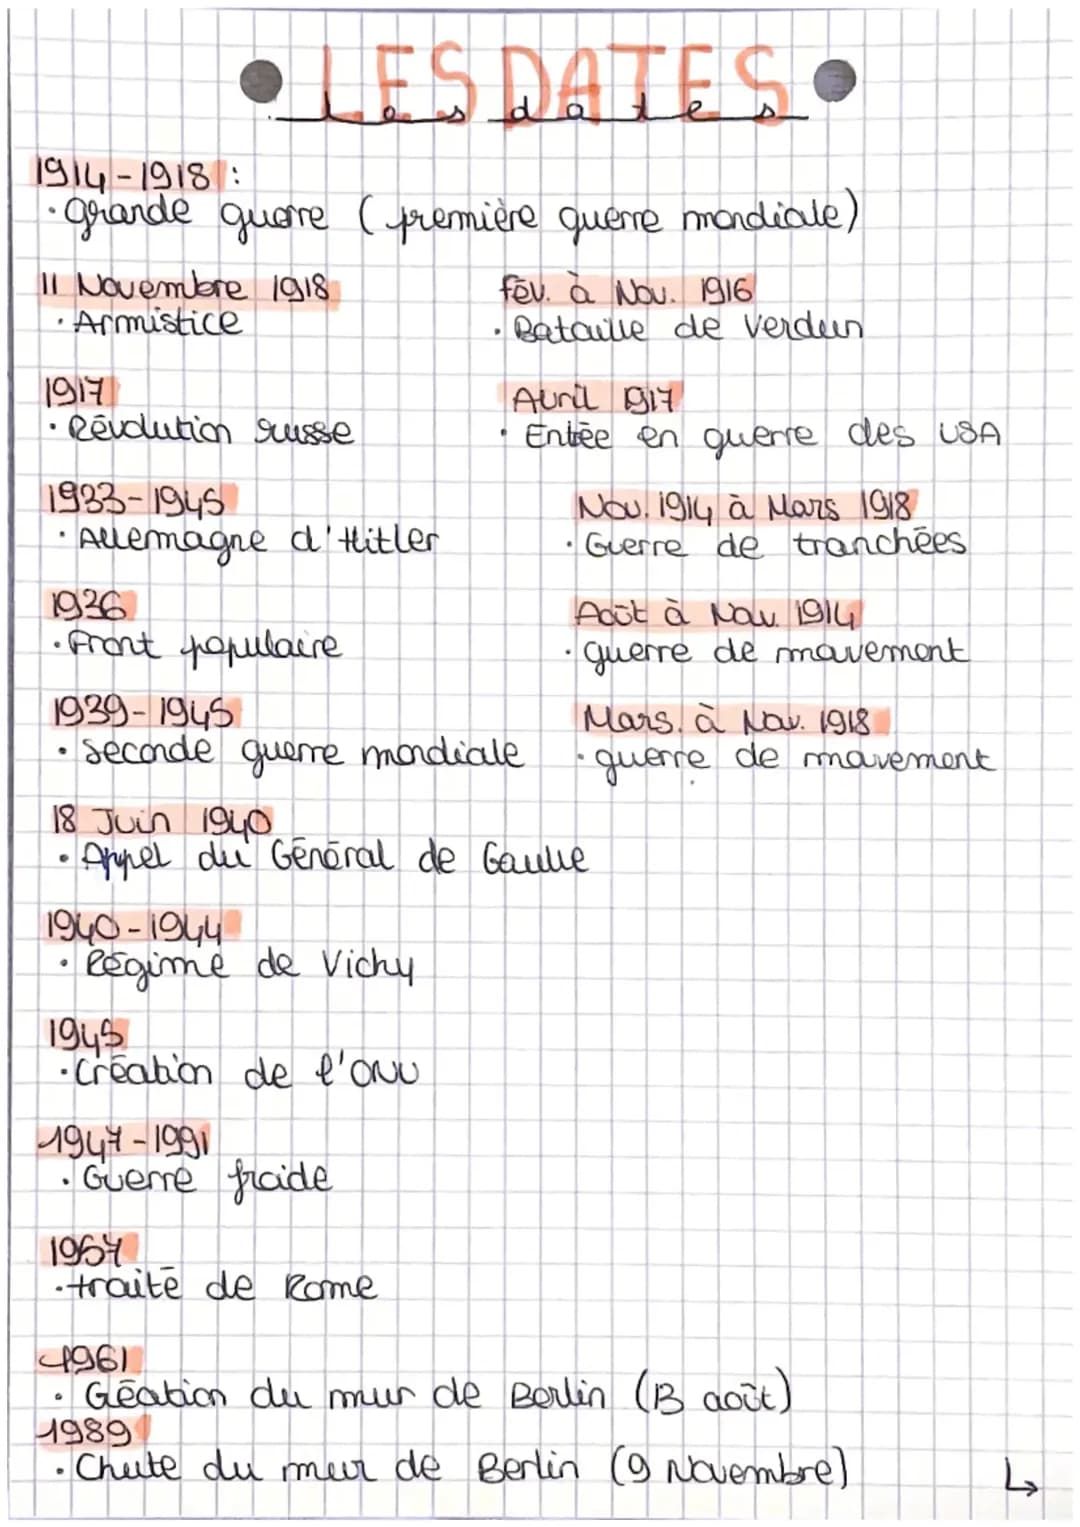 LES DATES
Les dates
1914-1918 :
· grande guerre (première guerre mondiale)
11 Novembre 1918
· Armistice
fév. à Nov. 1916
· Bataille de Verdun
1917
· Révolution russe
Avril 1917
· Entée en guerre des USA
1933-1945
· Allemagne d'Hitler
Nov. 1914 à Mars 1918
· Guerre de tranchées
1936
· Front populaire
Août à Nov. 1914
· guerre de mouvement
1939-1945
· Seconde guerre mondiale
Mars. à Nov. 1918
· guerre de mouvement
18 Juin 1940
· Appel du Général de Gaulle
1940-1944
· Régime de Vichy
1945
· Création de l'ONU
1947-1991
· Guerre froide
1957
· traité de Rome
1961
· Création du mur de Berlin (13 août)
1989
· Chute du mur de Berlin (9 Novembre)
↳